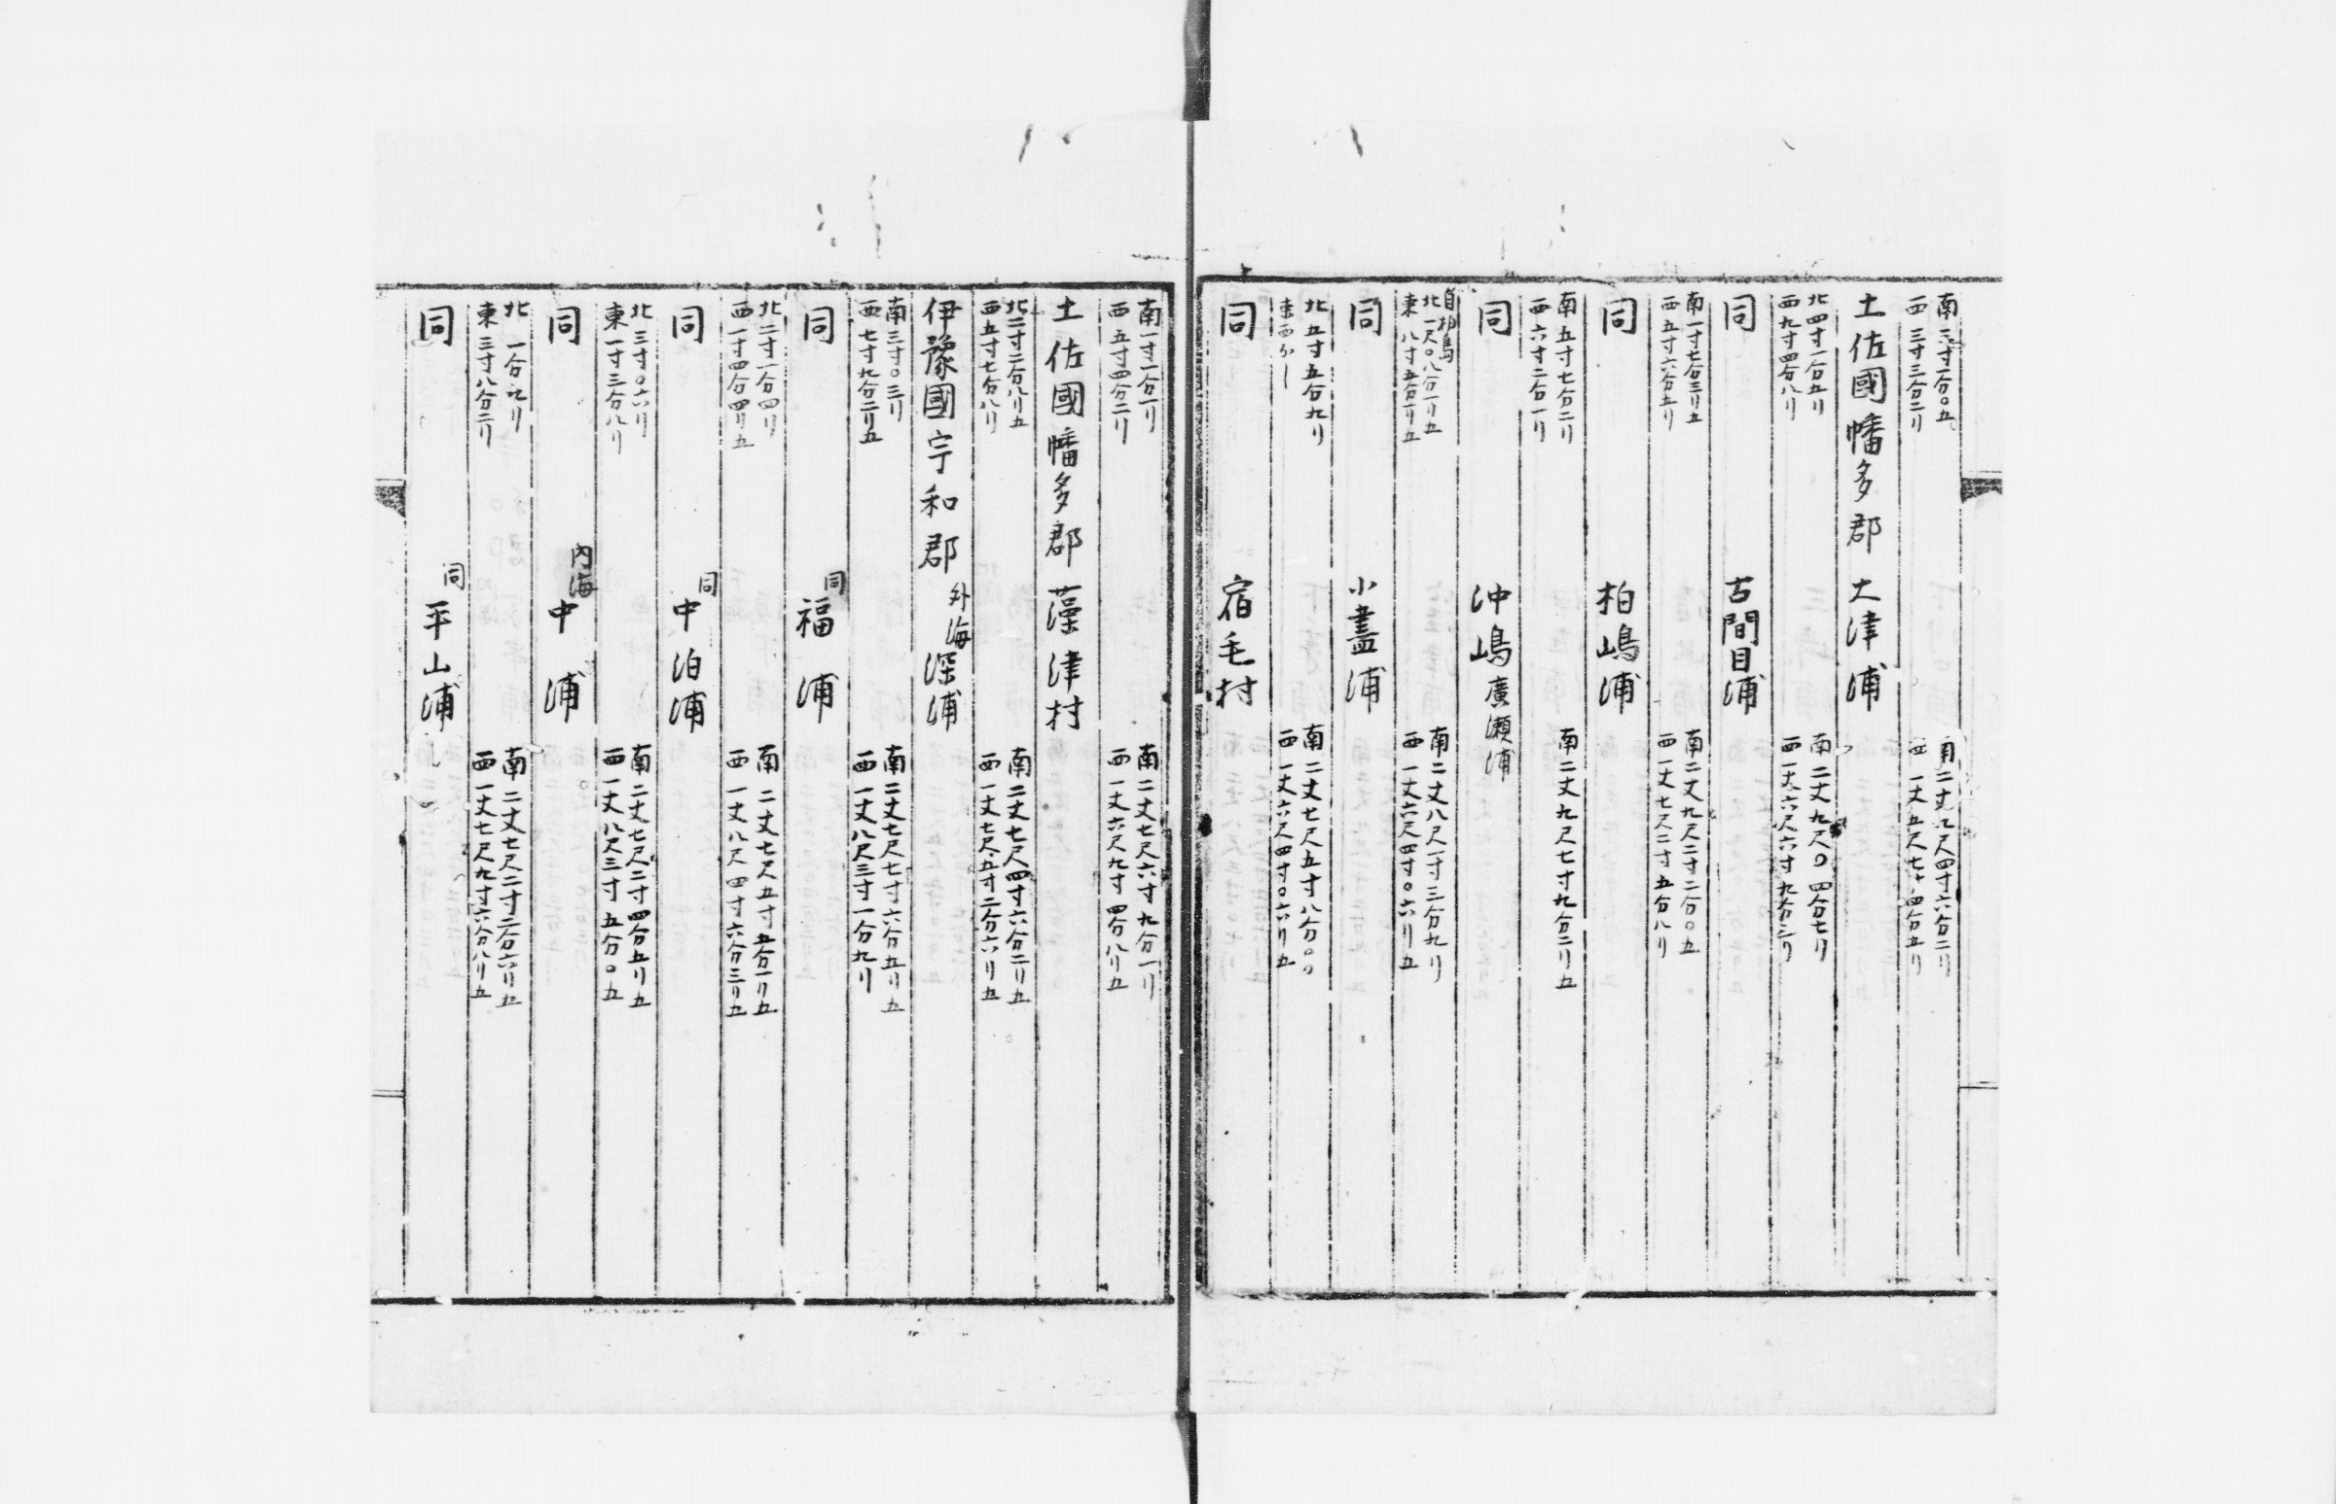 南三寸一分〇五
西三寸三分二リ
南二丈九尺四寸六分二リ
西一丈五尺七寸四分五リ
土佐國幡多郡大津浦
北四寸一分五リ
西九寸四分八リ
南二丈九尺〇四分七リ
西一丈六尺六寸九分三リ
同古間目浦
南一寸七分三リ五
西五寸六分五リ
南二丈九尺二寸二分〇五
西一丈七尺二寸五分八リ
同柏嶋浦
南五寸七分二リ
西六寸二分一リ
南二丈九尺七寸九分二リ五
同沖嶋廣瀬浦
自柏島
北一尺〇八分一リ五
東八寸五分一リ五
南二丈八尺一寸三分九リ
西一丈六尺四寸〇六リ五
同小盡浦
北五寸五分九リ
東西ナシ
南二丈七尺五寸八分〇〇
西一丈六尺四寸〇六リ五
同宿毛村
南一寸一分一リ
西五寸四分二リ
南二丈七尺六寸九分一リ
西一丈六尺九寸四分八リ五
土佐國幡多郡藻津村
北二寸二分八リ五
西五寸七分八リ
南二丈七尺四寸六分二リ五
西一丈七尺五寸二分六リ五
伊豫國宇和郡外海深浦
南三寸〇三リ
西七寸九分二リ五
南二丈七尺七寸六分五リ五
西一丈八尺三寸一分九リ
同同福浦
北二寸一分四リ
西一寸四分四リ五
南二丈七尺五寸五分一リ五
西一丈八尺四寸六分三リ五
同同中泊浦
北三寸〇六リ
東一寸三分八リ
南二丈七尺二寸四分五リ五
西一丈八尺三寸五分〇五
同内海中浦
北一分九リ
東三寸八分二リ
南二丈七尺二寸二分六リ五
西一丈七尺九寸六分八リ五
同同平山浦